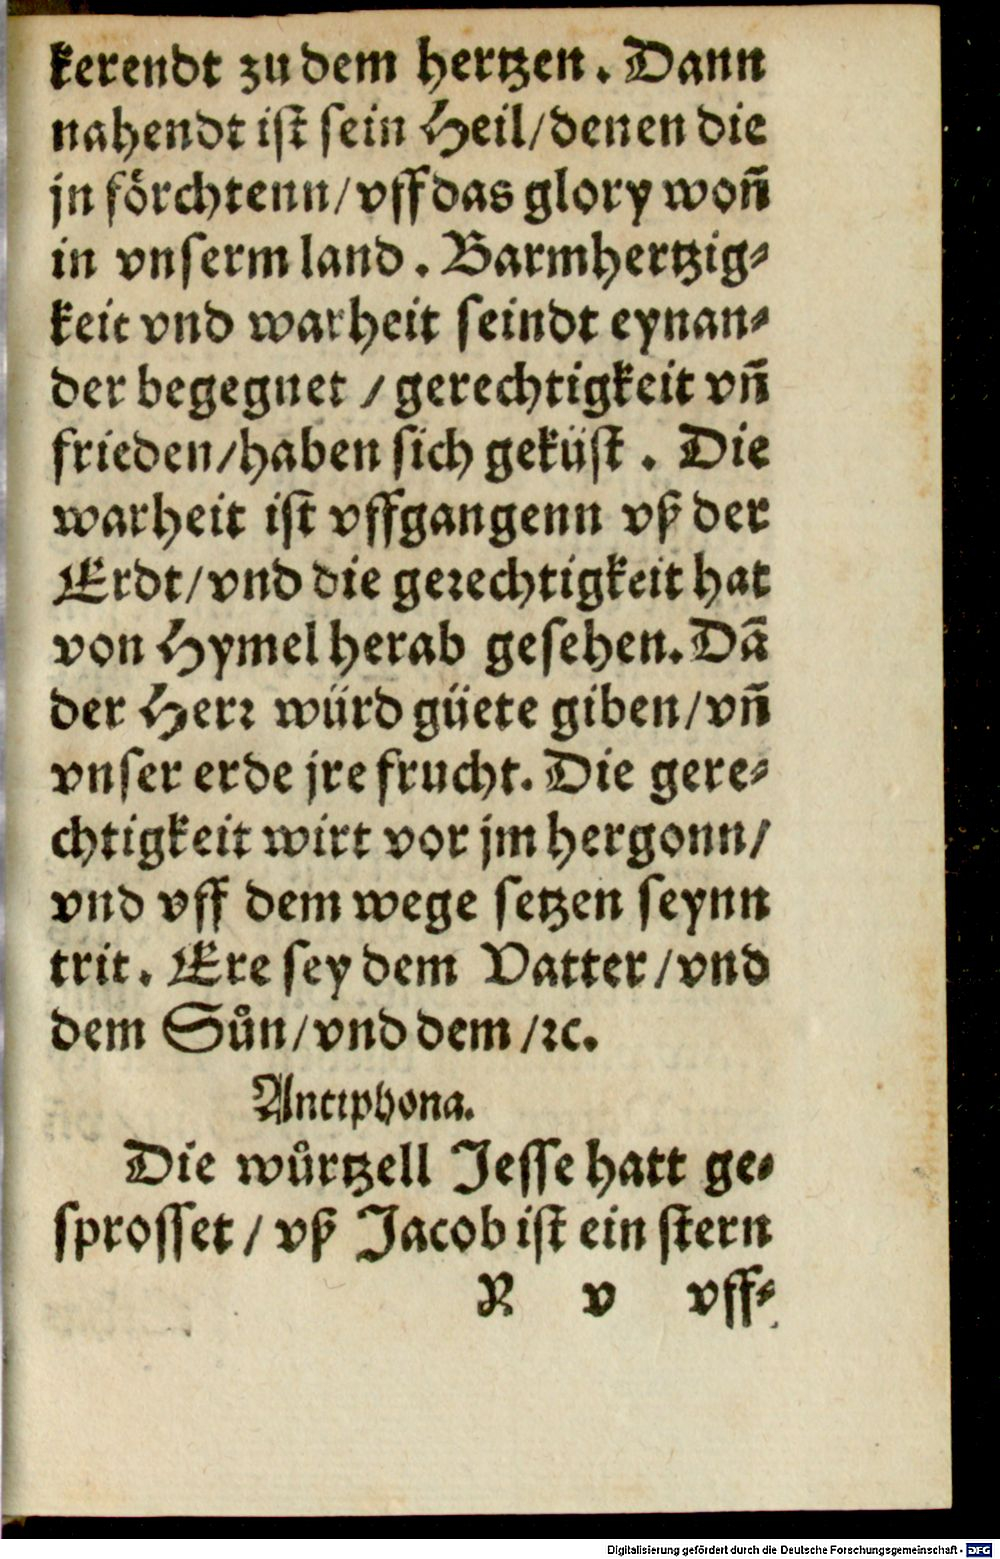 kerendt zu dem hertzen. Dann
nahendt ist sein Heil/denen die
jn förchtenn/vff das glory woñ
in vnserm land. Barmhertzig⸗
keit vnd warheit seindt eynan⸗
der begegnet /gerechtigkeit vñ
frieden/haben sich geküst. Die
warheit ist vffgangenn vß der
Erdt/vnd die gerechtigkeit hat
von Hymel herab gesehen. Dã
der Herr würd güete giben/vñ
vnser erde jre frucht. Die gere⸗
chtigkeit wirt vor jm hergonn/
vnd vff dem wege setzen seynn
trit. Ere sey dem Vatter/vnd
dem Sůn/vnd dem/ꝛc.
Antiphona.
Die wůrtzell Jesse hatt ge⸗
sprosset/vß Jacob ist ein stern
R v vff⸗
Digitalisierung gefördert durch die Deutsche Forschungsgemeinschaft - DFG